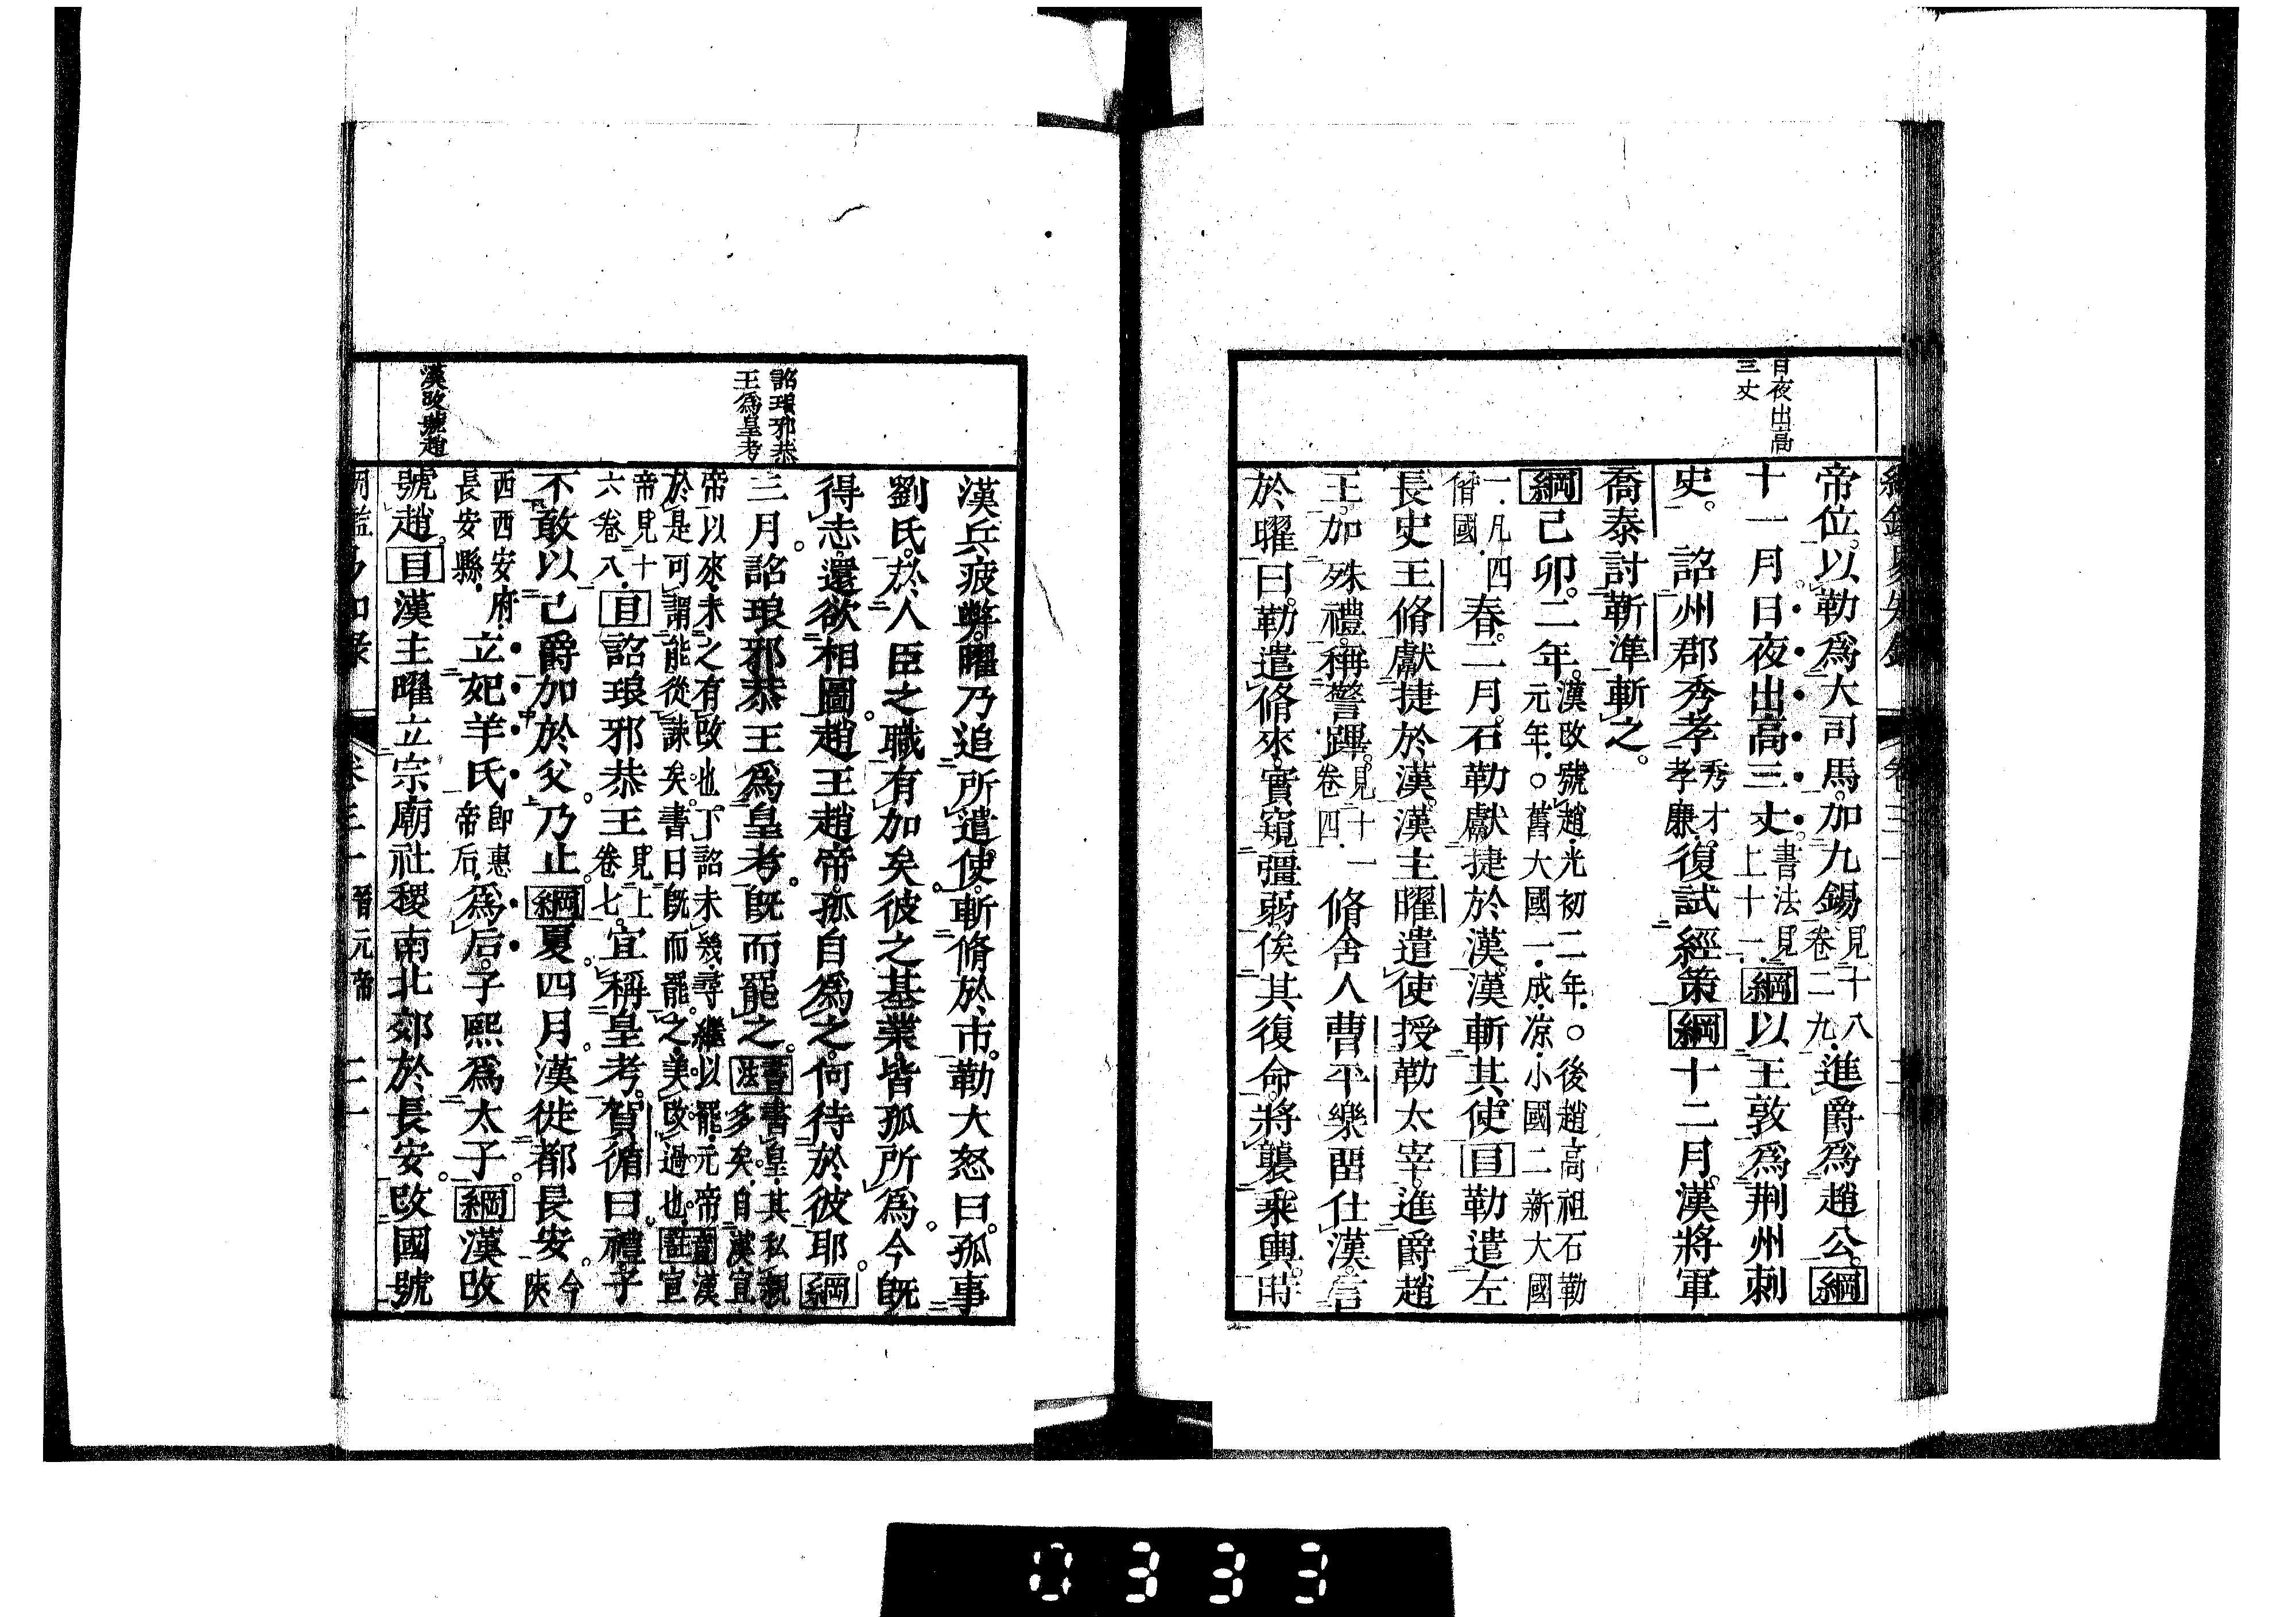 日夜出高
三丈
帝位。以勒爲大司馬。加九錫。見十八卷二九。進爵爲趙公。綱
十一月。日夜出高三丈。書法見上十一。綱以王敦爲荆州刺
史。詔州郡秀孝秀才。孝廉。復試經策綱十二月。漢將軍
喬泰討靳準斬之。
綱己卯。二年。漢改號趙。光初二年。○後趙高祖石勒元年。○舊大國一。成。凉。小國二新大國
一。凡四僭國。春。二月。石勒獻捷於漢。漢斬其使目勒遣左
長史王脩獻捷於漢。漢主曜遣使授勒太宰。進爵趙
王。加殊禮。稱警蹕。見十一卷四。脩舍人曹平樂留仕漢。言
於曜曰。勒遣脩來。實窺彊弱。俟其復命。將襲乘輿。時
詔琅邪恭
王爲皇考
漢改號趙
漢兵疲弊。曜乃追所遣使。斬脩於市。勒大怒曰。孤事
劉氏。於人臣之職有加矣。彼之基業。皆孤所爲。今既
得志。還欲相圖。趙王趙帝。孤自爲之。何待於彼耶。綱
三月。詔琅邪恭王爲皇考。既而罷之。書法書皇。其私親多矣。自漢宣
帝以來。未之有改也。下詔未幾。尋繼以罷。元帝於是可謂能從諫矣。書曰既而罷之。美改過也。註宣
帝見十六卷八。目詔琅邪恭王見上卷七。宜稱皇考。賀循曰。禮。子
不敢以己爵加於父。乃止。綱夏四月。漢徙都長安。今陝
西西安府長安縣。立妃羊氏卽惠帝后。爲后。子熙爲太子。綱漢改
號趙。目漢主曜立宗廟社稷南北郊於長安。改國號
卷三十一 晉元帝
0333